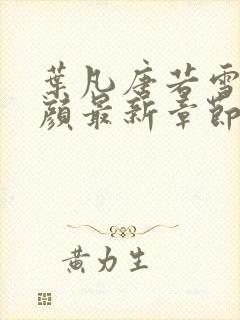 葉凡唐若雪
顏最新章節
黃力生